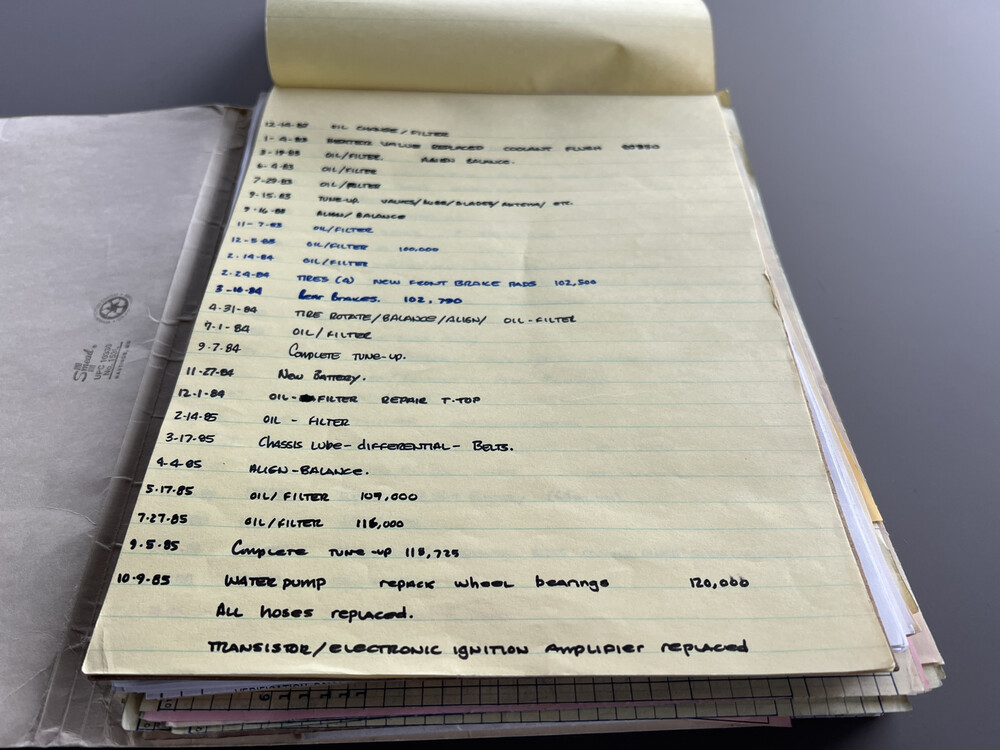 12-14-82 OIL CHANGE/FILTER
1-4-83 HEATER VALVE REPLACED COOLANT FLUSH
3-19-83 OIL/FILTER. ALIGN BALANCE.
6-4-83 OIL/FILTER
7-29-83 OIL/FILTER
9-15-83 TUNE-UP VALVES/LUBE/BLADES/ANTENA/ ETC.
9-16-83 ALIGN/BALANCE
11-7-83 OIL/FILTER
12-5-83 OIL/FILTER 100,000
2-14-84 OIL/FILTER
2-24-84 TIRES (4) NEW FRONT BRAKE PADS 102,500
3-10-84 Rear Brakes. 102,790
4-31-84 TIRE ROTATE/BALANCE/ALIGN/ OIL-FILTER
7-1-84 OIL/FILTER
9.7.84 COMPLETE TUNE-UP.
11-27-84 NEW BATTERY.
12.1-84 OIL-FILTER REPAIR T-TOP
2-14-85 OIL - FILTER
3-17-85 CHASSIS LUBE-DIFFERENTIAL- BELTS.
4-4-85 ALIGN-BALANCE.
5.17-85 OIL/FILTER 109,000
7-27-85 OIL/FILTER 116,000
9-5-85 Complete TUNE-UP 118,725
10-9-85 WATER PUMP repack wheel bearings 120,000
All hoses replaced.
TRANSISTOR/ELECTRONIC IGNITION AMPLIFIER replaced
Smead's
UPC 10330
HASTINGS, MN